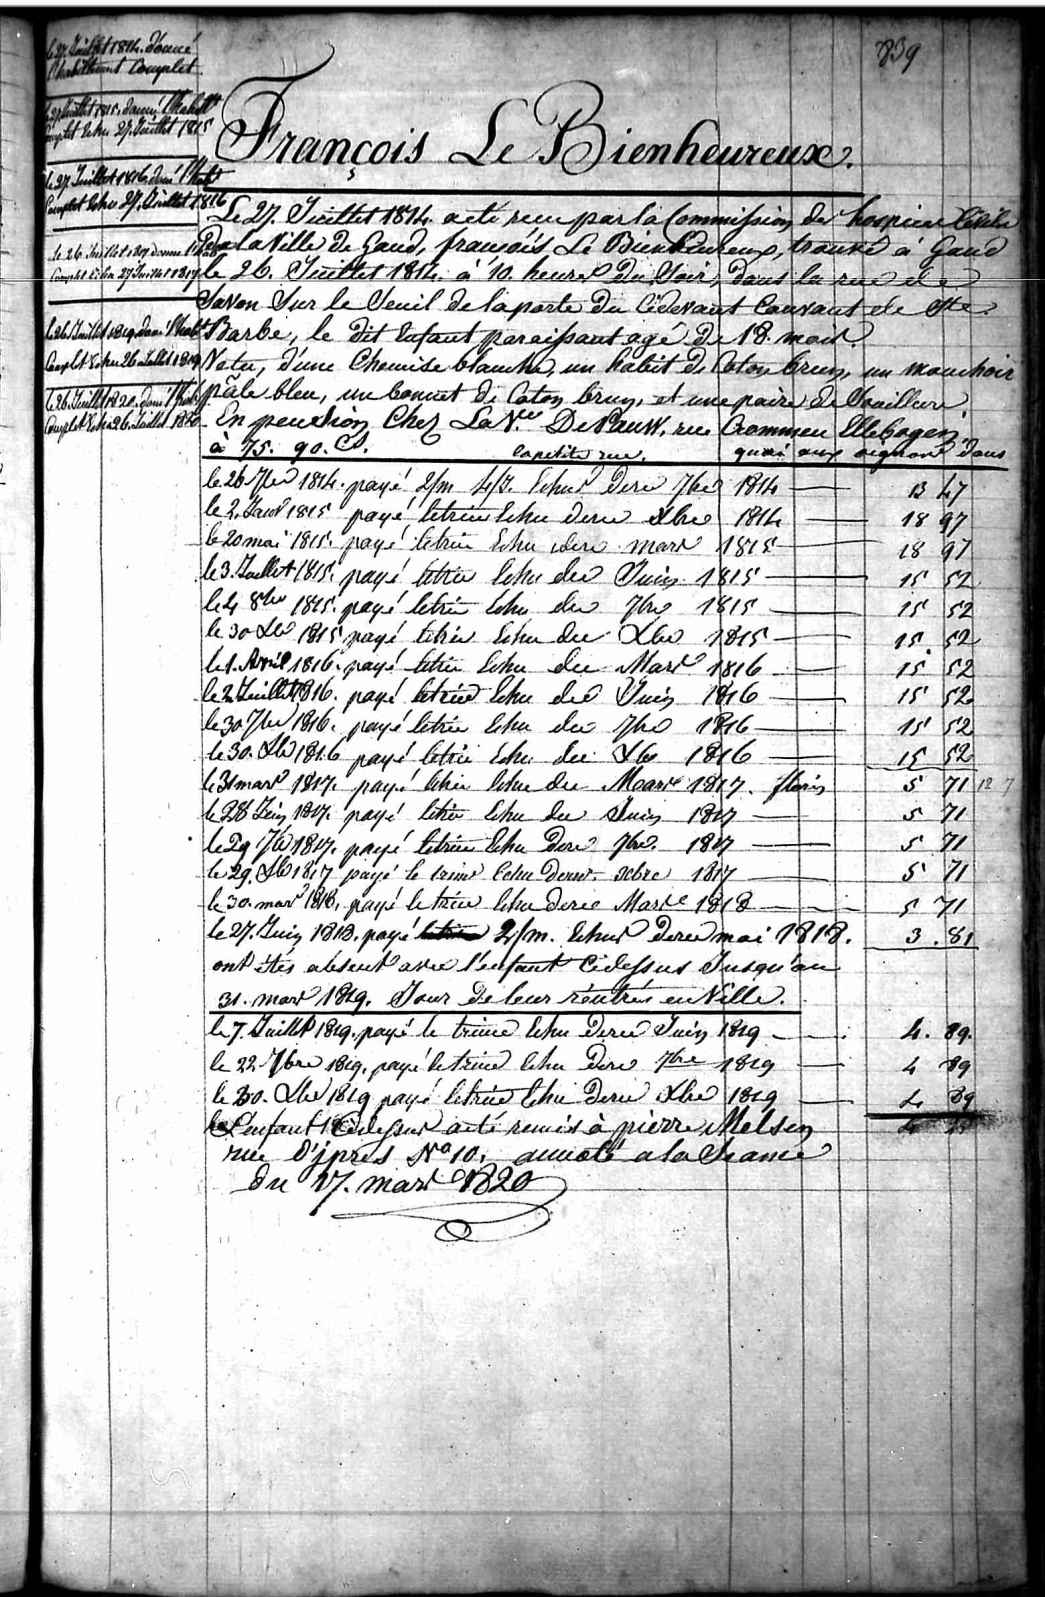 839
le 27. Juillet 1814. donné
l'habillment Complet
le 27 Juillet 1815. donné l'habillt
Complet Echu 27. Juillet 1815
le 27. Juillet 1816. doné l'habt
Complet Echu 27. Juillet 1816
le 26. Juillet 1817 donné l'hab
Complet Echu 27 Juillet 1817
le 26. Juillet 1819. doné l'habt
Complet Echu 26. Juillet 1819
le 26. Juillet 1820. doné l'hab
Complet Echu 26. Juillet 1820
François Le Bienheureux.
Le 27. Juillet 1814. a été recu par la Commission des hospices Civils
de la Ville de Gand, françois Le Bienheureux, trouvé à Gand
le 26. Juillet 1814. à 10. heures du Soir, dans la rue de
Savon Sur le Seuil de la porte du Cidevant Couvant de Ste
Barbe, le dit Enfant paraissant agé de 18. mois.
Vetu, d'une Chemise blanche, un habit de Coton brun, un mouchoir
pâle bleu, un bonnet de Coton brun, et une paire de Souilliers.
En pension Chez La Ve. De Pauw, rue Crommen Elleboogen
à 75. 90. Cs. la petite rue. quai aux oignons dans
le 26 7bre 1814. payé 2/m 4/J. Echus dere 7bre 1814 — 13 47
le 2. Janr 1815 payé letrim Echu dere Xbre 1814 — 18 97
le 20 mai 1815. payé letrim Echu dere mars 1815 — 18 97
le 3. Juillet 1815. payé letrim Echu der Juin 1815 — 15 52
le 4 8bre 1815. payé letrim Echu der 7bre 1815 — 15 52
le 30 Xbre 1815 payé letrim Echu der Xbre 1815 — 15. 52
le 1. Avril 1816. payé letrim Echu der Mars 1816 — 15 52
le 2 Juillet 1816. payé letrim Echu der Juin 1816 — 15 52
le 30 7bre 1816. payé letrim Echu der 7bre 1816 — 15 52
le 30. Xbre 1816 payé letrim Echu der Xbre 1816 — 15 52
le 31 mars 1817. payé letrim Echu der Mars 1817. florin 5 71 12 7
le 28 Juin 1817. payé letrim Echu der Juin 1817 — 5 71
le 29 7bre 1817. payé letrim Echu dere 7bre. 1817 — 5 71
le 29. Xbre 1817 payé le trime Echu Dernr. Xbre 1817 — 5 71
le 30. mars 1818. payé letrim Echu dere Mars 1818 — 5 71
le 27. Juin 1818. payé letrim 2/m. Echus dere mai 1818. 3. 81
ont étés absent avec l'enfant Cidessus Jusqu'au
31. mars 1819. Jour de leur réntrée en Ville.
le 7. Juillet 1819. payé le trime Echu Dere Juin 1819 — 4. 89.
le 22 7bre 1819. payé letrim Echu Dere 7bre 1819 — 4 89
le 30. Xbre 1819 payé letrim Echu Dere Xbre 1819 — 4 89
L'enfant Cidessus a été remis à pierre Melsen
rue D'ipres No 10. à la Seance
du 17. mars 1820